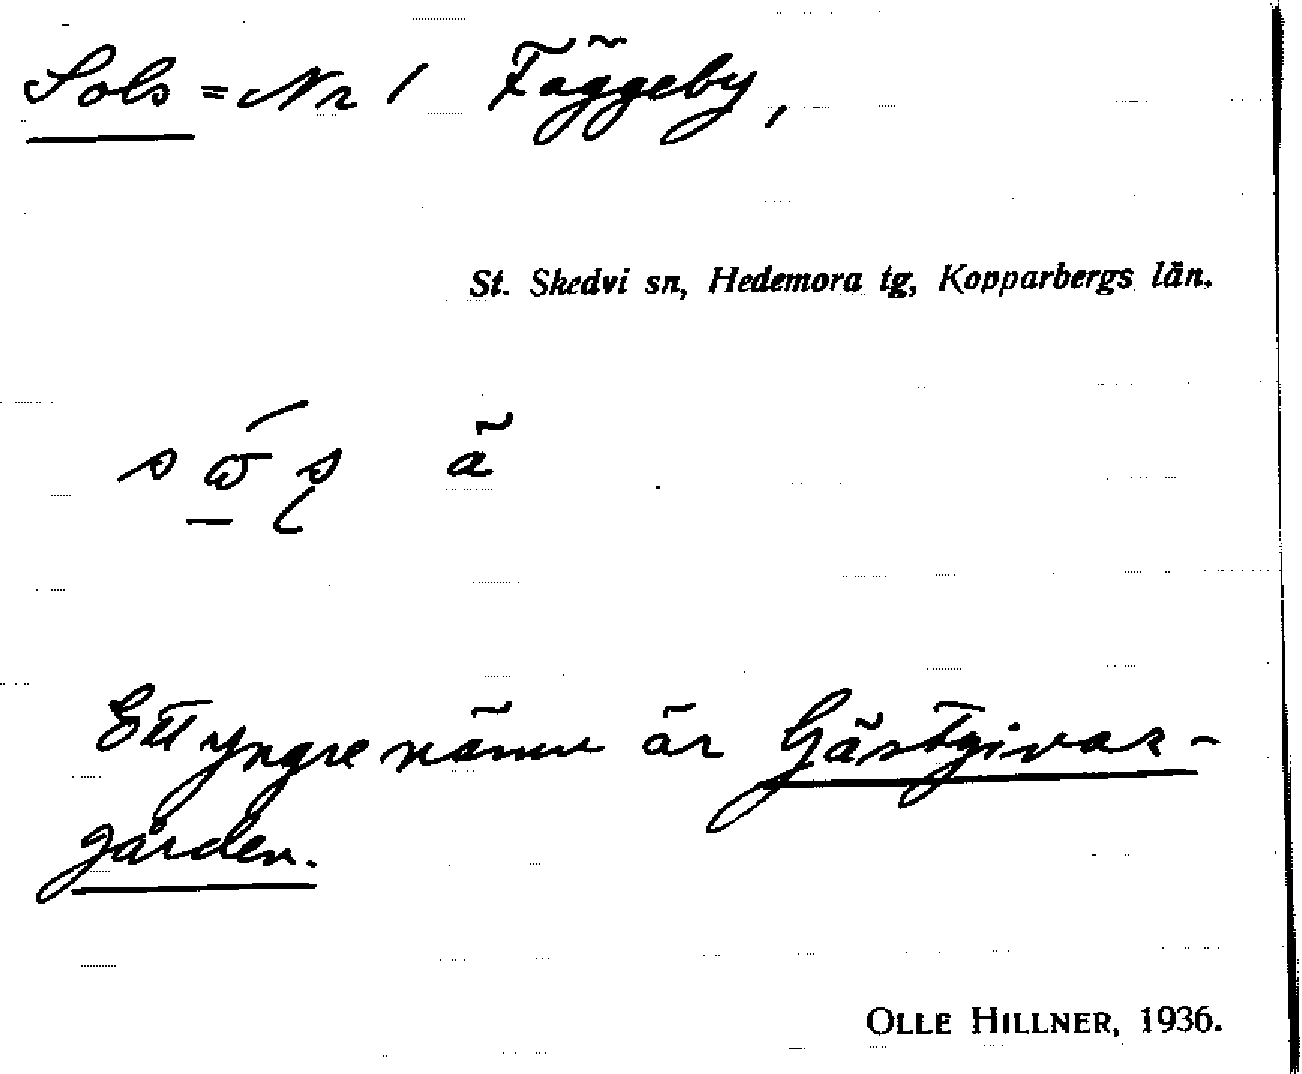 Sols = Nr 1 Fäggeby,
St. Skedvi sn, Hedemora tg, Kopparbergs län.
ã
Ett yngre namn är Gästgivar-
gården.
OLLE HILLNER, 1936.